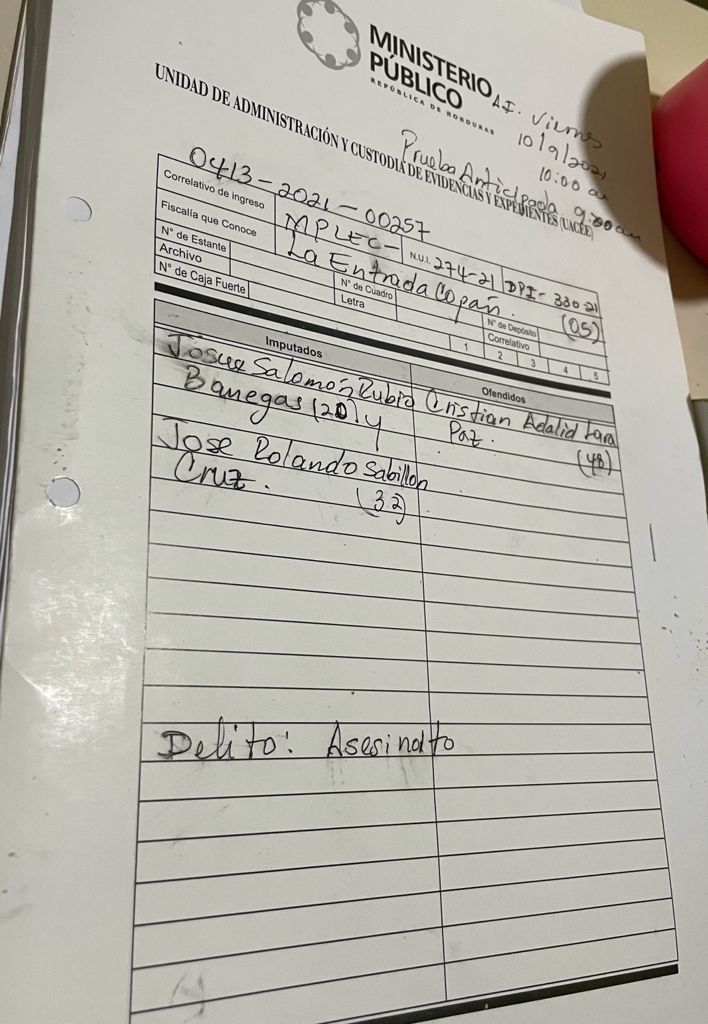 MINISTERIO
PÚBLICO
REPÚBLICA DE HONDURAS
A.I. Viernes
10/9/2021
10:00 am
UNIDAD DE ADMINISTRACIÓN Y CUSTODIA DE EVIDENCIAS Y EXPEDIENTES (UACEE)
Prueba Anticipada 9:00 am
Correlativo de ingreso 0413-2021-00257
Fiscalía que Conoce MPLEC- N.U.I. 274-21 DPI-330 21
La Entrada Copán. (05)
N° de Estante
Archivo N° de Cuadro N° de Depósito
N° de Caja Fuerte Letra Correlativo
1 2 3 4 5
Imputados Ofendidos
Josue Salomón Rubio Cristian Adalid Lara
Banegas (20) y Paz. (48)
Jose Rolando Sabillon
Cruz. (32)
Delito: Asesinato